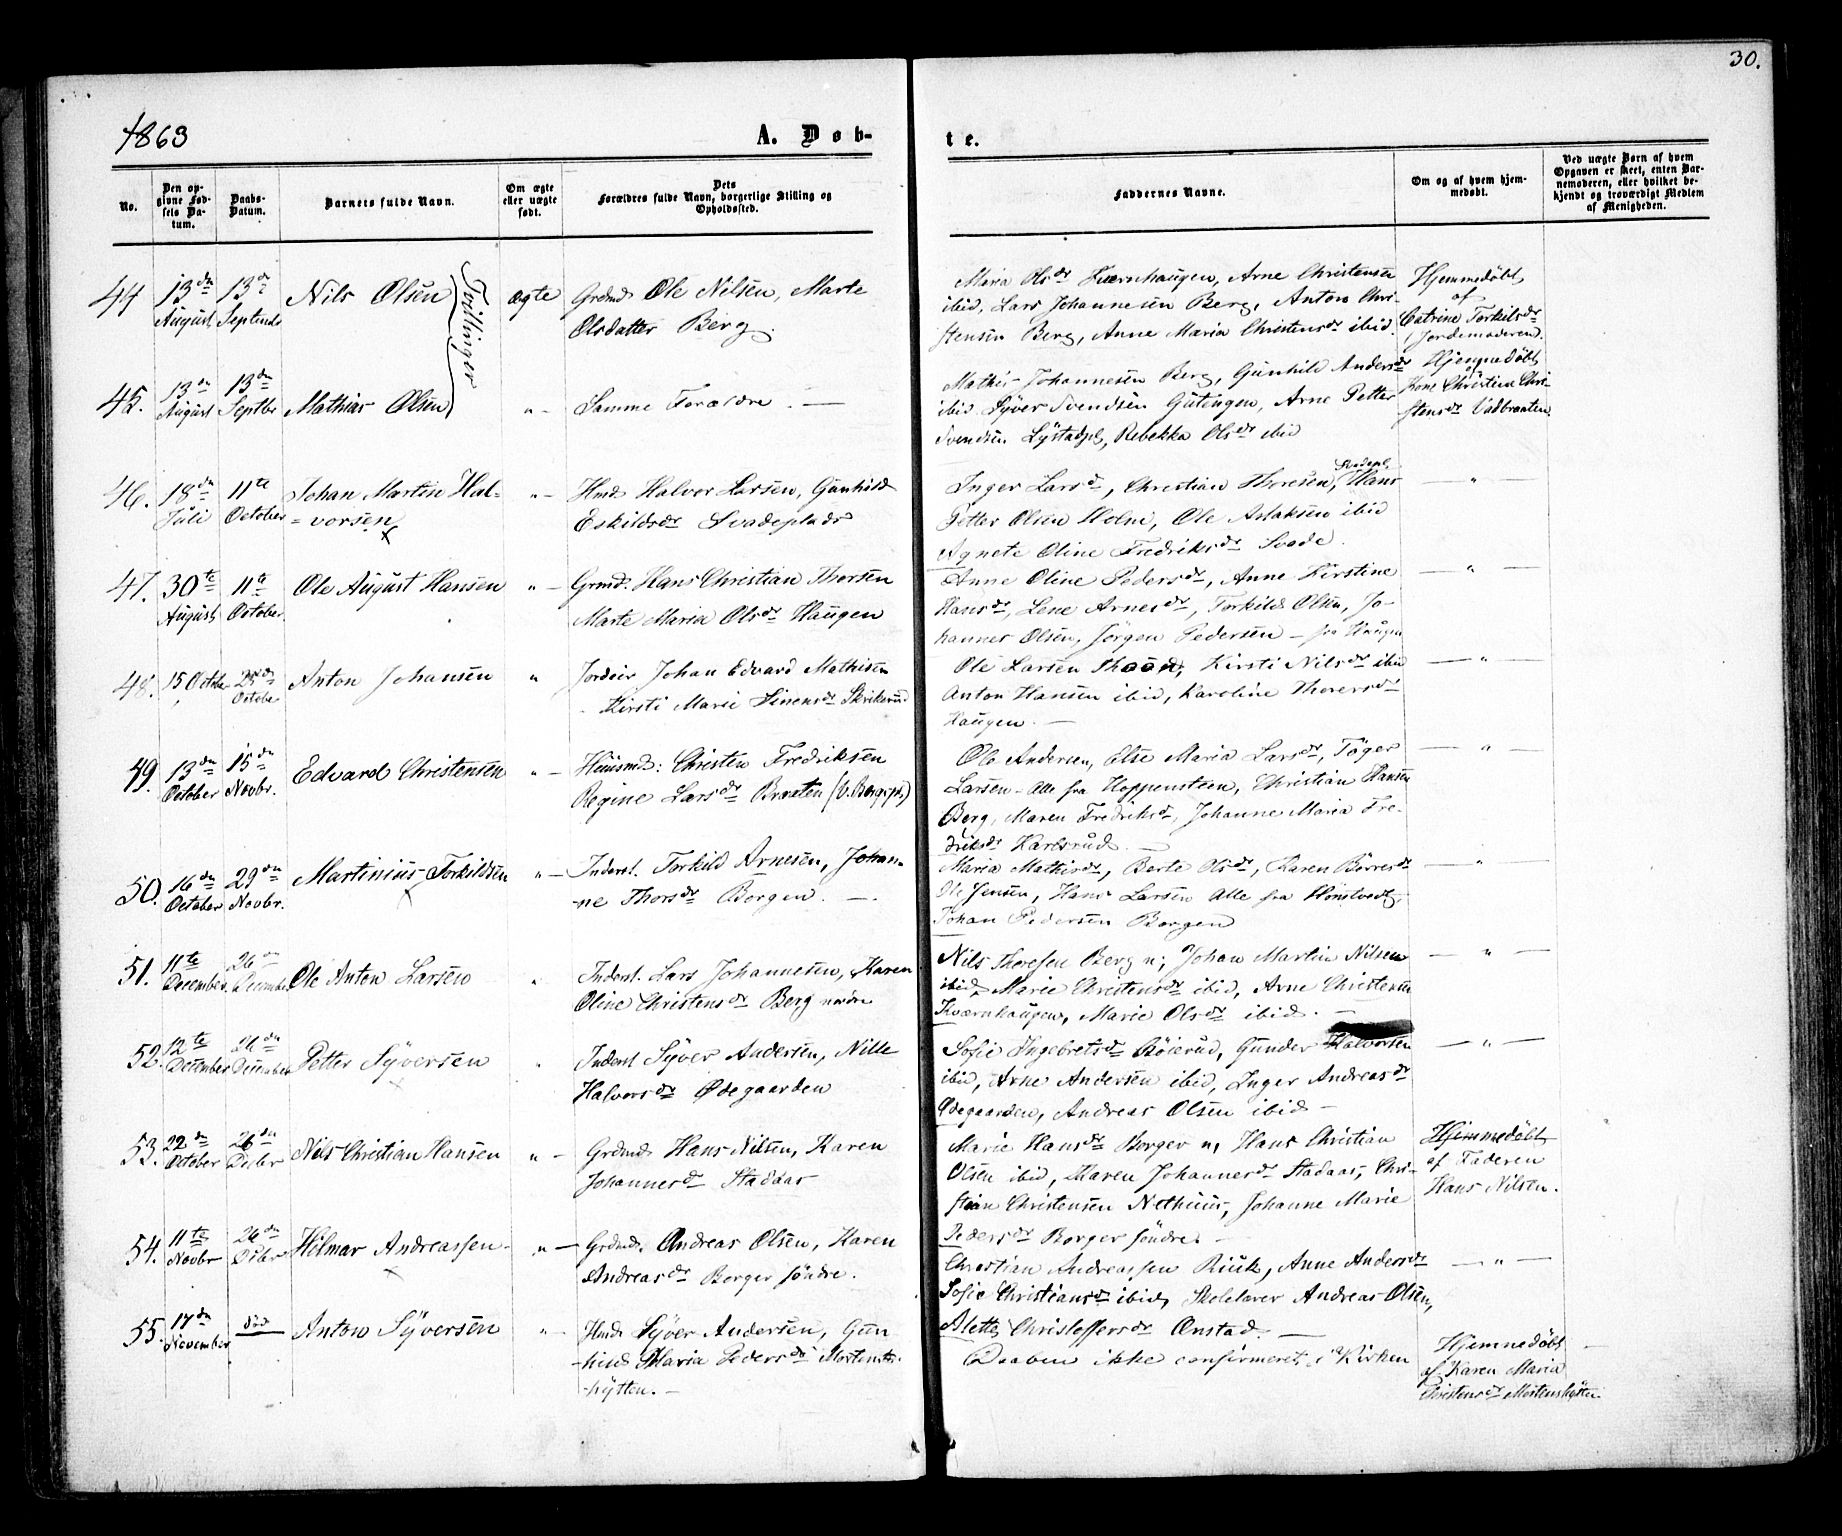 30.
1863
A. Døb-
te.
No.
Den op-
givne Fød-
sels Da-
tum.
Daabs-
Datum.
Barnets fulde Navn.
Om ægte
eller uægte
født.
Dets
Forældres fulde Navn, borgerlige Stilling og
Opholdssted.
Faddernes Navne.
Om og af hvem hjem-
medøbt.
Ved uægte Børn af hvem
Opgaven er skeet, enten Bar-
nemoderen, eller hvilket be-
kjendt og troværdigt Medlem
af Menigheden.
44 13de August 13de Septembr Nils Olsen Tvillinger ægte Grdmd. Ole Nilsen, Marte
Olsdatter Berg.
Maria Olsdr Kværnhaugen, Arne Christensen
ibid, Lars Johannesen Berg, Anton Chri-
stensen Berg, Anne Maria Christensdr ibid.
Hjemmedøbt
af
Catrine Torkilsdr
Jordemoderen.
45. 13de August 13de Septbr Mathias Olsen " Samme Forældre. —
Mathis Johannesen Berg, Gunhild Andersdr
ibid Syver Svendsen Gutengen, Arne Petter
Svendsen Lystadpl, Rebekka Olsdr ibid
Hjemmedøbt
af
Kone Christine Chri-
stensdr Vadbraaten.
46. 18de Juli 11te October Johan Martin Hal-
vorsen " Hmd Halvor Larsen, Gunhild
Eskildsdr Svadeplads
Inger Larsdr, Christian Thoresen, Svadepl. Hans
Petter Olsen Holm, Ole Aslaksen ibid
Agnete Oline Fredriksdr Svade.
— " —
47. 30te August 11te October Ole August Hansen " Grmd. Hans Christian Thorsen
Marte Maria Olsdr Haugen
Anne Oline Pedersdr, Anne Kirstine
Hansdr, Lene Arnesdr, Torkild Olsen, Jo-
hannes Olsen, Jørgen Pedersen — fra Haugen
— " —
48. 15 October 25de October Anton Johansen " Jordeir Johan Edvard Mathisen
Kirsti Marie Simensdr Skrikerud
Ole Larsen Kirsti Nilsdr ibid
Anton Hansen ibid, Karoline Thorersdr
Haugen. —
— " —
49. 13de October 15de Novbr. Edvard Christensen " Huusmd: Christen Fredriksen
Regine Larsdr Braaten
Ole Andersen, Else Maria Larsdr, Tøger
Larsen — Alle fra Hoppensteen, Christian Hansen
Berg, Maren Fredriksdr, Johanne Maria Fre-
driksdr Karlsrud. —
— " —
50. 16de October 29de Novbr. Martinius Torkildsen " Inderst. Torkild Arnesen, Johan-
ne Thorsdr Borgen. —
Maria Mathisdr, Berte Olsdr, Karen Børresdr
Ole Jensen, Hans Larsen Alle fra Honstvedt,
Johan Pedersen Borgen
— " —
51. 11te December 26de December Ole Anton Larsen " Inderst. Lars Johannesen, Karen
Oline Christensdr Berg nordre
Nils Thoresen Berg n; Johan Martin Nilsen
ibid, Marie Christensdr ibid, Arne Christensen
Kværnhaugen, Marie Olsdr ibid. —
— " —
52. 12te December 26de December Petter Syversen " Inderst Syver Andersen, Nille
Halvorsdr Ødegaarden
Sofie Ingebretsdr Røierud, Gunder Halvorsen
ibid, Arne Andersen ibid, Inger Andreasdr
Ødegaarden, Andreas Olsen ibid —
— " —
53. 22de October 26de Decbr Nils Christian Hansen " Grdmd Hans Nilsen, Karen
Johannesdr Stadaas
Marie Hansdr Borger n, Hans Christian
Olsen ibid, Maren Johannesdr Stadaas, Chri-
stian Christensen Nethuus, Johanne Marie
Pedersdr Borger søndre. —
Hjemmedøbt
af Faderen
Hans Nilsen.
54. 11te Novbr 26de Decbr Hilmar Andreassen. " Grdmd. Andreas Olsen, Karen
Andreasdr Borger søndre.
Christian Andreassen Ruuk, Anne Andersdr
Sofie Christiansdr ibid, Skolelærer Andreas Olsen,
Alette Christoffersdr Ønstad. —
— " —
55. 17de November død Anton Syversen " Hmd Syver Andersen, Gun
hild Maria Pedersdr Mortens-
hytten. —
Daaben ikke confirmeret i Kirken
Hjemmedøbt
af Karen Maria
Christensdr Mortenshytten